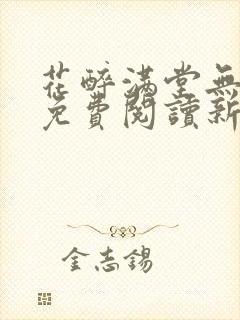 花醉滿堂無
免費閱讀新
金志錫